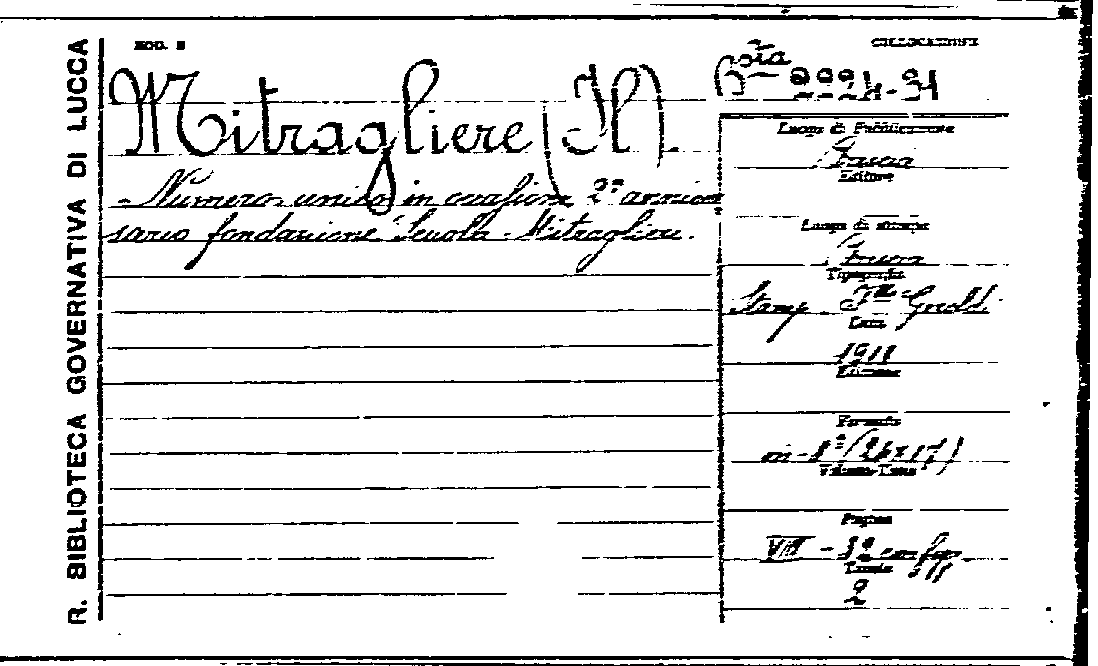 R. BIBLIOTECA GOVERNATIVA DI LUCCA
MOD. B
COLLOCAZIONE
Mitragliere (Il).
Bsta 2224-31
- Numero unico in occasione 2º anniver
sario fondazione Scuola Mitraglieri.
Luogo di Pubblicazione
Editore
Luogo di stampa
Tipografia
Stamp.
Data
1918
Edizione
Formato
in-8º (26x17)
Volume-Tomo
Pagine
VIII - 32 con figg.
Tavole
2